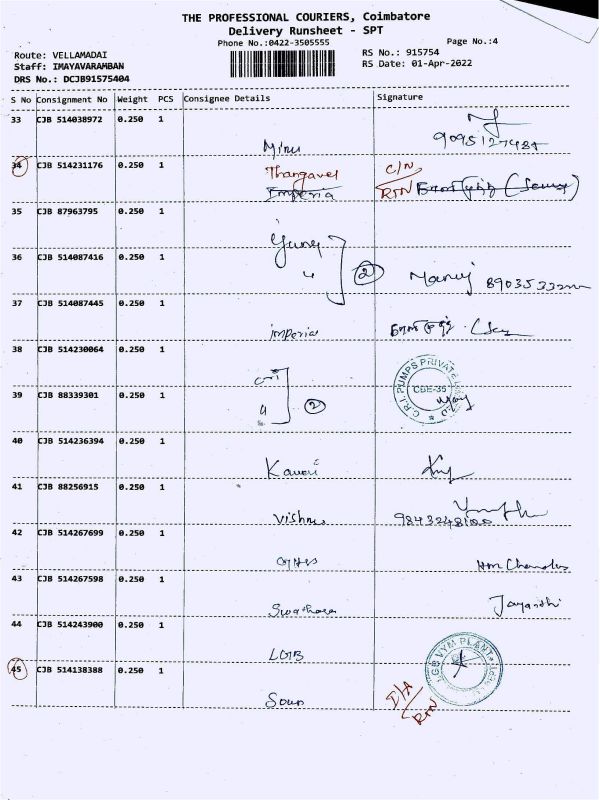 THE PROFESSIONAL COURIERS, Coimbatore
Delivery Runsheet - SPT
Phone No.:0422-3505555
Page No.:4
Route: VELLAMADAI
RS No.: 915754
Staff: IMAYAVARAMBAN
RS Date: 01-Apr-2022
DRS No.: DCJB91575404
S No Consignment No Weight PCS Consignee Details Signature
33 CJB 514038972 0.250 1
Minu
34 CJB 514231176 0.250 1 Thangavel C/N
Imperia RTN
35 CJB 87963795 0.250 1
36 CJB 514087416 0.250 1
" 2 Manuj
37 CJB 514087445 0.250 1
imperia
38 CJB 514230064 0.250 1
C.R.I. PUMPS PRIVATE
CBE-35
39 CJB 88339301 0.250 1
2
40 CJB 514236394 0.250 1
Kaveri
41 CJB 88256915 0.250 1
Vishnu
42 CJB 514267699 0.250 1
43 CJB 514267598 0.250 1
Jayanthi
44 CJB 514243900 0.250 1
LGB
LGB VYM PLANT
45 CJB 514138388 0.250 1
Soun D/A
RTN